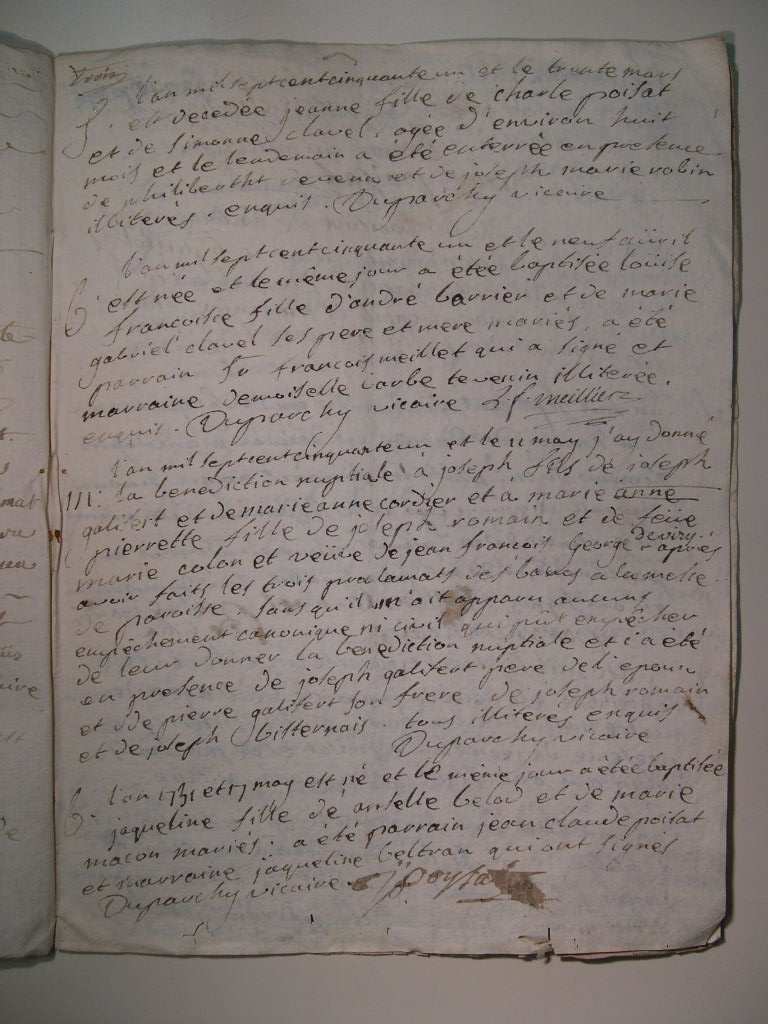 trois
L'an mil sept cent cinquante un et le trente mars
S. est decedée jeanne fille de charle poisat
et de simonne clavel, agée d'environ huit
mois et le lendemain a été enterrée en presence
de philibertht revena et de joseph marie robin
illiterés. enquis. Duparchy vicaire
L'an mil sept cent cinquante un et le neuf avril
B. est née et le même jour a étée baptisée loüise
francoise fille d'andré barrier et de marie
gabriel clavel ses pere et mere mariés, a été
parrain Sr francois meillet qui a signé et
marraine demoiselle barbe tevenin illiterée.
enquis. Duparchy vicaire f. meillier
L'an mil sept cent cinquante un et le 11 may j'ay donné
M. la benediction nuptiale à joseph fils de joseph
galifert et de marie anne cordier et à marie anne
pierrette fille de joseph romain et de feüe
marie colon et veüve de jean francois George deviry après
avoir faits les trois proclamats des bans a la messe
de paroisse, sans qu'il m'ait apparu aucuns
empêchement canonique ni civil qui püt empêcher
de leur donner la benediction nuptiale et ce a été
en presence de joseph galifert pere de l'epoux
et de pierre galifert son frere, de joseph romain
et de joseph bisternais. tous illiterés enquis
Duparchy vicaire
B. L'an 1751 et 17 may est né et le même jour a étée baptisée
jaqueline fille de anselle belod et de marie
macon mariés. a été parrain jean claude poisat
et marraine jaqueline beltran qui ont signés
Duparchy vicaire. Poysat